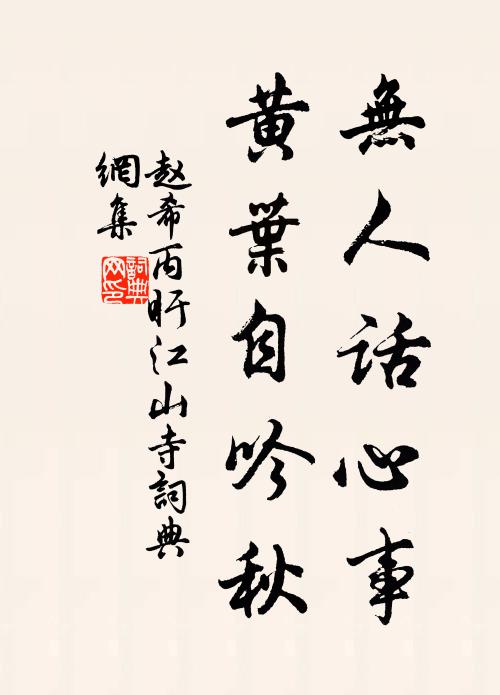 無人話心事
黃葉自吟秋
赵希丙旴江山寺詞典
網集
詞典
网印